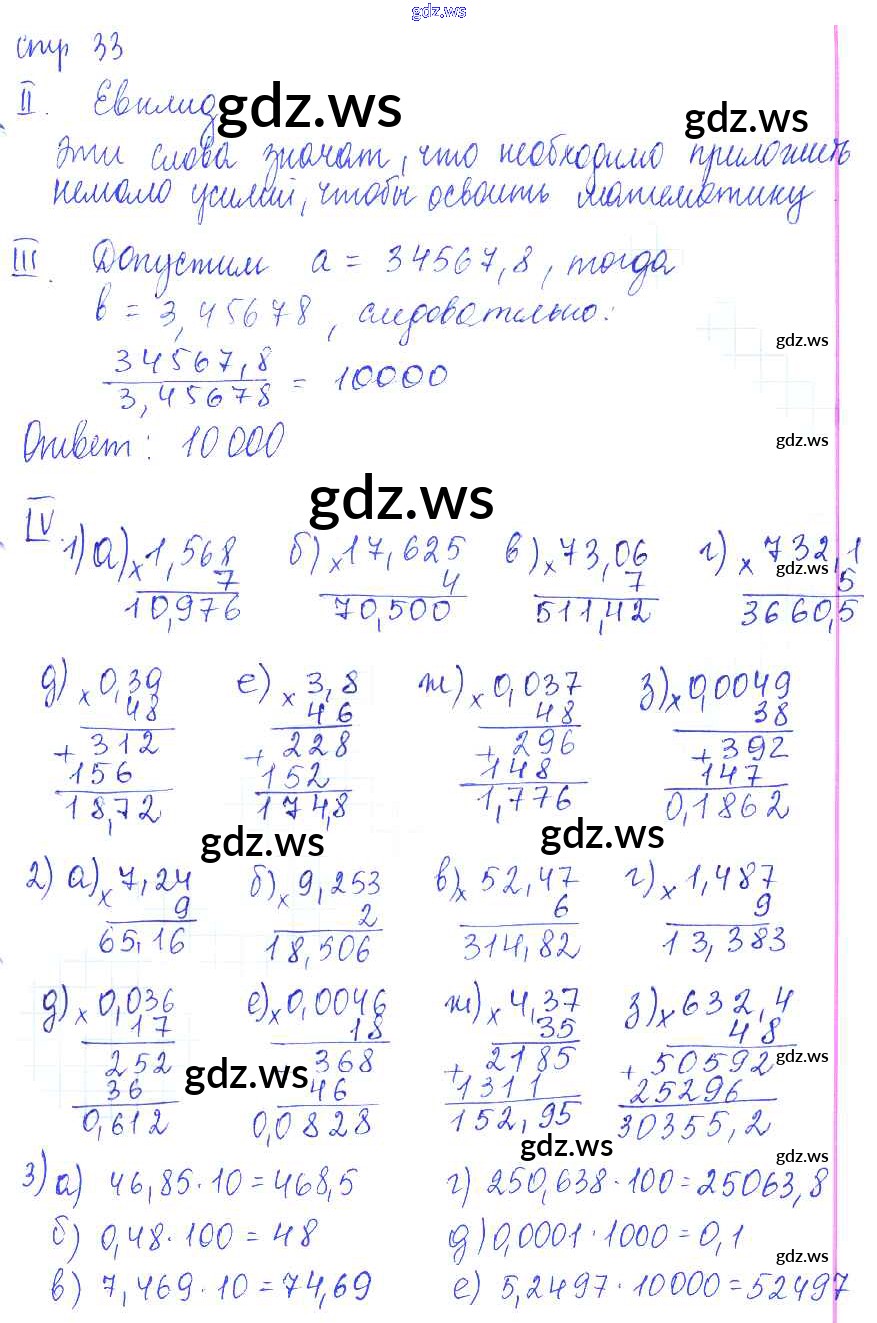 gdz.ws
стр 33
II. Евклид gdz.ws gdz.ws
Эти слова значат, что необходимо приложить
немало усилий, чтобы освоить математику
III. Допустим a = 34567,8, тогда
b = 3,45678, следовательно:
gdz.ws
34567,8
3,45678 = 10000
gdz.ws
Ответ: 10000
gdz.ws
IV. 1) а) × 1,568 б) × 17,625 в) × 73,06 г) × 732,1
gdz.ws
7 4 7 5
10,976 70,500 511,42 3660,5
д) × 0,39 е) × 3,8 ж) × 0,037 з) × 0,0049
48 46 48 38
+ 312 + 228 + 296 + 392
156 152 148 147
18,72 174,8 1,776 0,1862
gdz.ws gdz.ws
2) а) × 7,24 б) × 9,253 в) × 52,47 г) × 1,487
9 2 6 9
65,16 18,506 314,82 13,383
д) × 0,036 е) × 0,0046 ж) × 4,37 з) × 632,4
17 18 35 48
252 368 + 2185 + 50592
gdz.ws gdz.ws
36 46 1311 25296
0,612 0,0828 152,95 30355,2
gdz.ws
3) а) 46,85·10=468,5 г) 250,638·100=25063,8
б) 0,48·100=48 д) 0,0001·1000=0,1
gdz.ws
в) 7,469·10=74,69 е) 5,2497·10000=52497